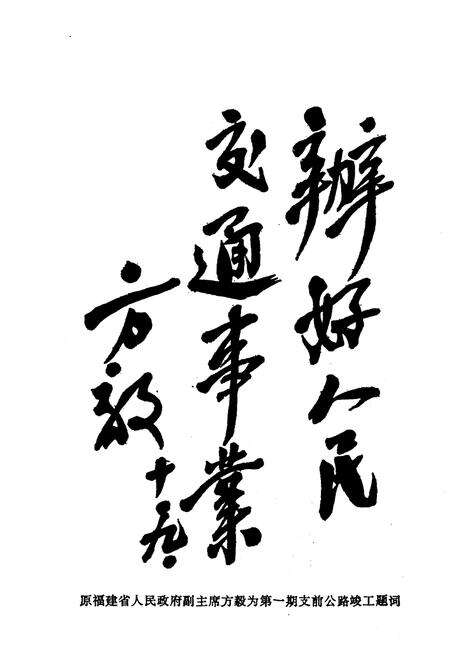 辦好人民
交通事業
方毅
十一九.
原福建省人民政府副主席方毅为第一期支前公路竣工题词